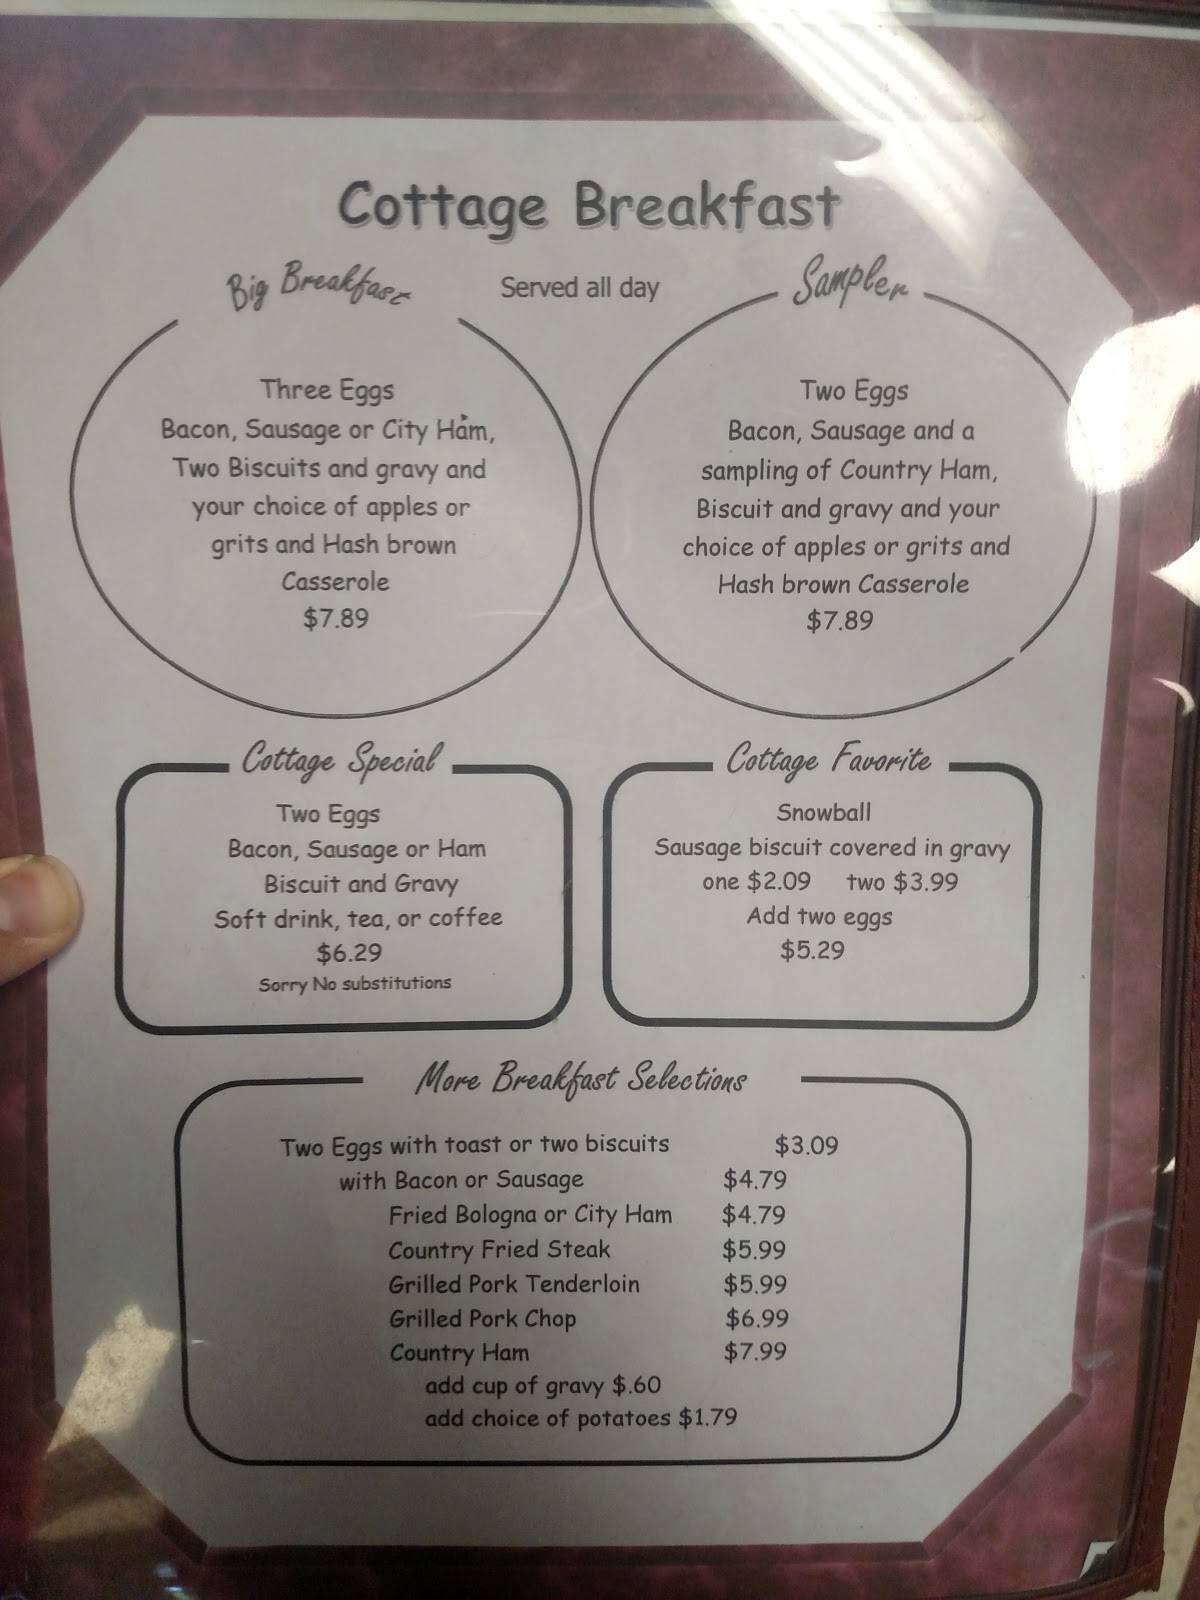 Cottage Breakfast
Served all day
Big Breakfast
Three Eggs
Bacon, Sausage or City Ham,
Two Biscuits and gravy and
your choice of apples or
grits and Hash brown
Casserole
$7.89
Sampler
Two Eggs
Bacon, Sausage and a
sampling of Country Ham,
Biscuit and gravy and your
choice of apples or grits and
Hash brown Casserole
$7.89
Cottage Special
Two Eggs
Bacon, Sausage or Ham
Biscuit and Gravy
Soft drink, tea, or coffee
$6.29
Sorry No substitutions
Cottage Favorite
Snowball
Sausage biscuit covered in gravy
one $2.09 two $3.99
Add two eggs
$5.29
More Breakfast Selections
Two Eggs with toast or two biscuits $3.09
with Bacon or Sausage $4.79
Fried Bologna or City Ham $4.79
Country Fried Steak $5.99
Grilled Pork Tenderloin $5.99
Grilled Pork Chop $6.99
Country Ham $7.99
add cup of gravy $.60
add choice of potatoes $1.79